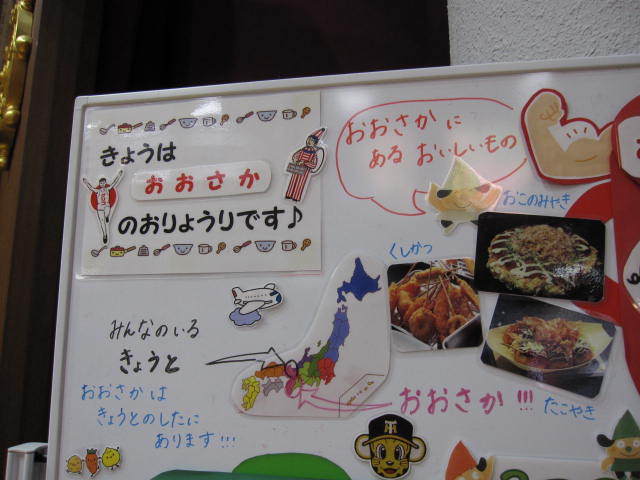 きょうは
おおさか
のおりょうりです♪
おおさかに
ある おいしいもの
おこのみやき
くしかつ
たこやき
みんなのいる
きょうと
おおさか!!!
おおさかは
きょうとのしたに
あります!!!